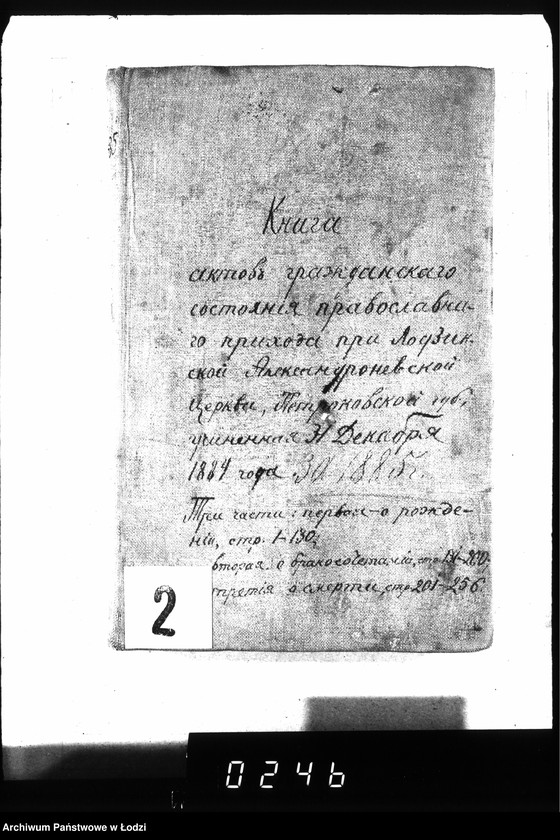 Книга
актовъ гражданскаго
состоянія православна-
го прихода при Лодзин-
ской Александроневской
Церкви, Петроковской губ.,
учиненная 31 Декабря
1884 года за 1885 г.
Три части: первая - о рожде-
ніи, стр. 1-130;
вторая, о бракосочетаніи, стр. 131-200;
третія о смерти, стр. 201-256
2
0246
Archiwum Państwowe w Łodzi